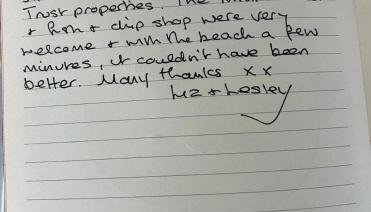 Trust properties. The
+ fish + chip shop were very
welcome + with the beach a few
minutes, it couldn't have been
better. Many thanks x x
Liz + Lesley